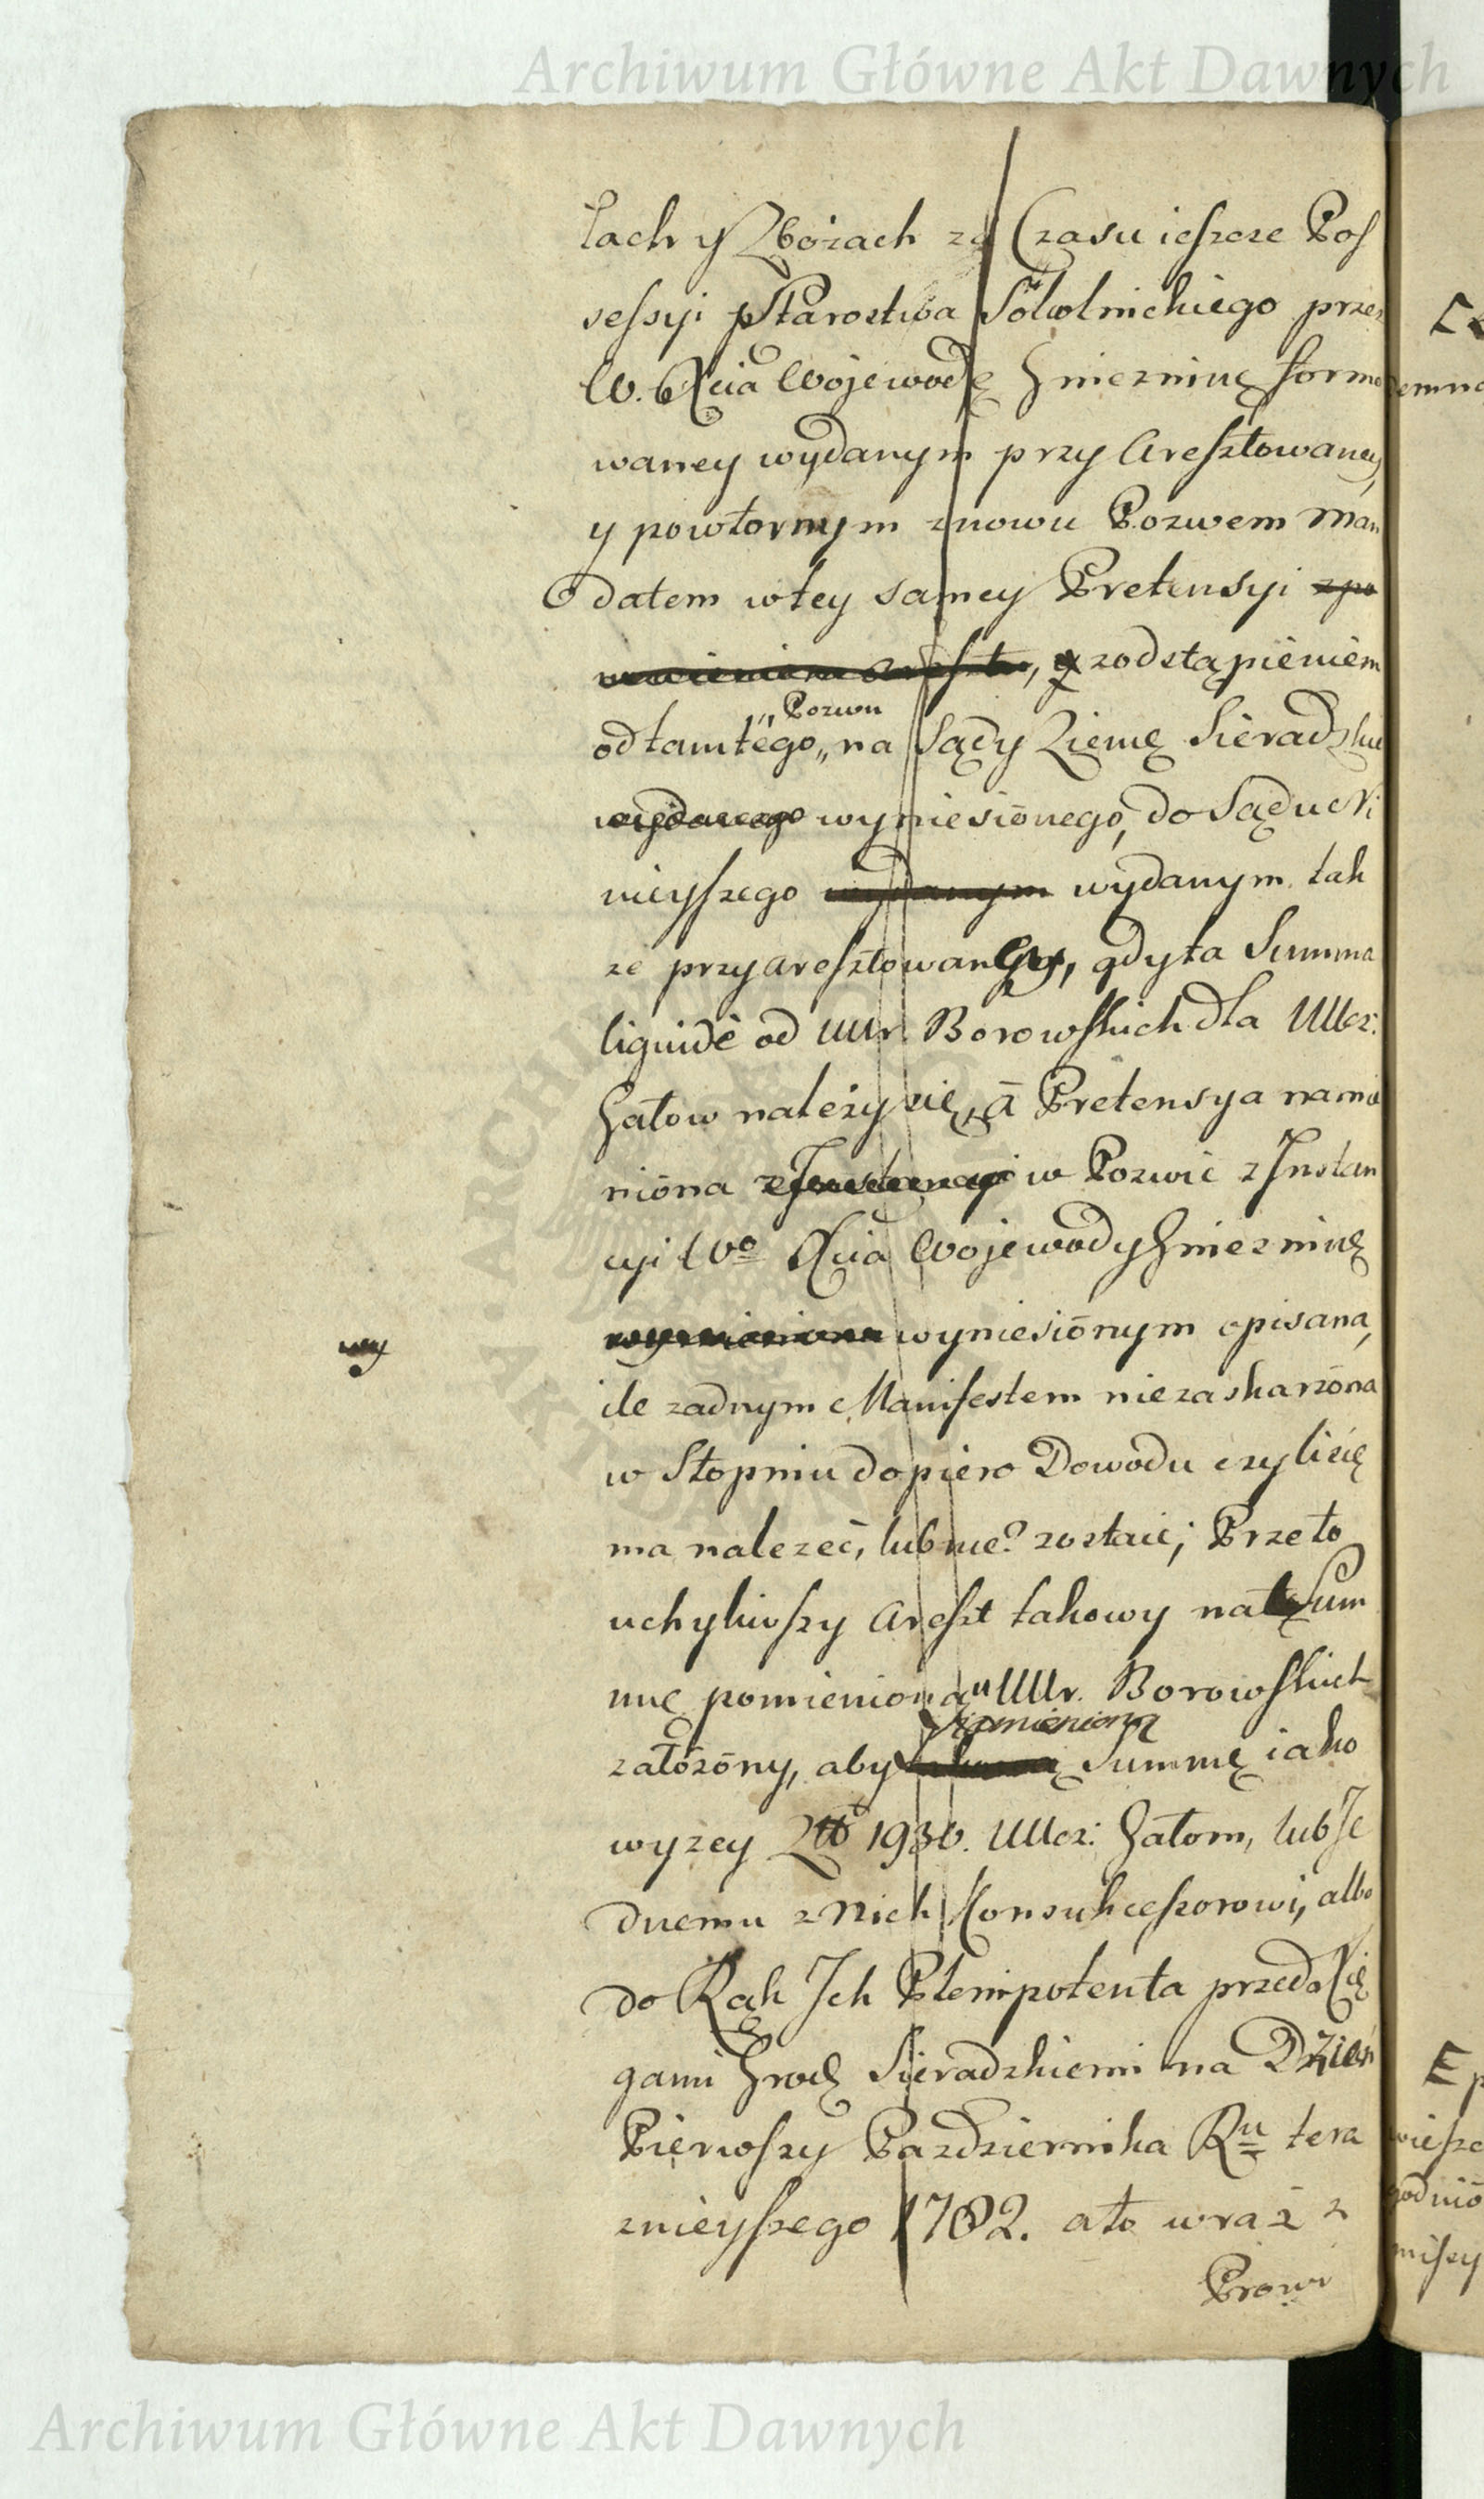 Archiwum Główne Akt Dawnych
łach y Zbożach za Czasu ieszcze Pos
sessyi Starostwa Sokolnickiego przez
W. Xcia Wojewodę Gnieznińę formo
waney wydanym przy Aresztowaney,
y powtornym znowu Pozwem Man
datem w tey samey Pretensyi zpo
nowieniem aresztu, z odstąpieniem
od tamtego Pozwu na Sądy Ziemę Sieradzkie
wydanego wyniesionego, do Sądu Ni
nieyszego wydanym wydanym tak
ze przyaresztowaney, gdy ta Summa
liquide od UUr. Borowskich dla UUcz:
Gałow należy się, a Pretensya namie
niona z Instancyi w Pozwie z Instan
cyi Wo Xcia Wojewody Gnieznińę
wymieniona wyniesionym opisana,
ile zadnym Manifestem nie zaskarżona
w Stopniu dopiero Dowodu czyli się
ma nalezeć, lub nie? zostaie; Przeto
uchyliwszy Areszt takowy na tę Sum
mę pomienioną u UUr. Borowskich
założony, aby namienioną Summę iako
wyzey Ztt 1930. UUcz: Gałom, lub Je
dnemu z Nich Konsukcessorowi, albo
do Rąk Jch Plenipotenta przed Xię
gami Grodz Sieradzkiemi na Dzień
Pierwszy Pazdziernika Ru tera
znieyszego 1782. a to wraz z
Prowi
way
Archiwum Główne Akt Dawnych